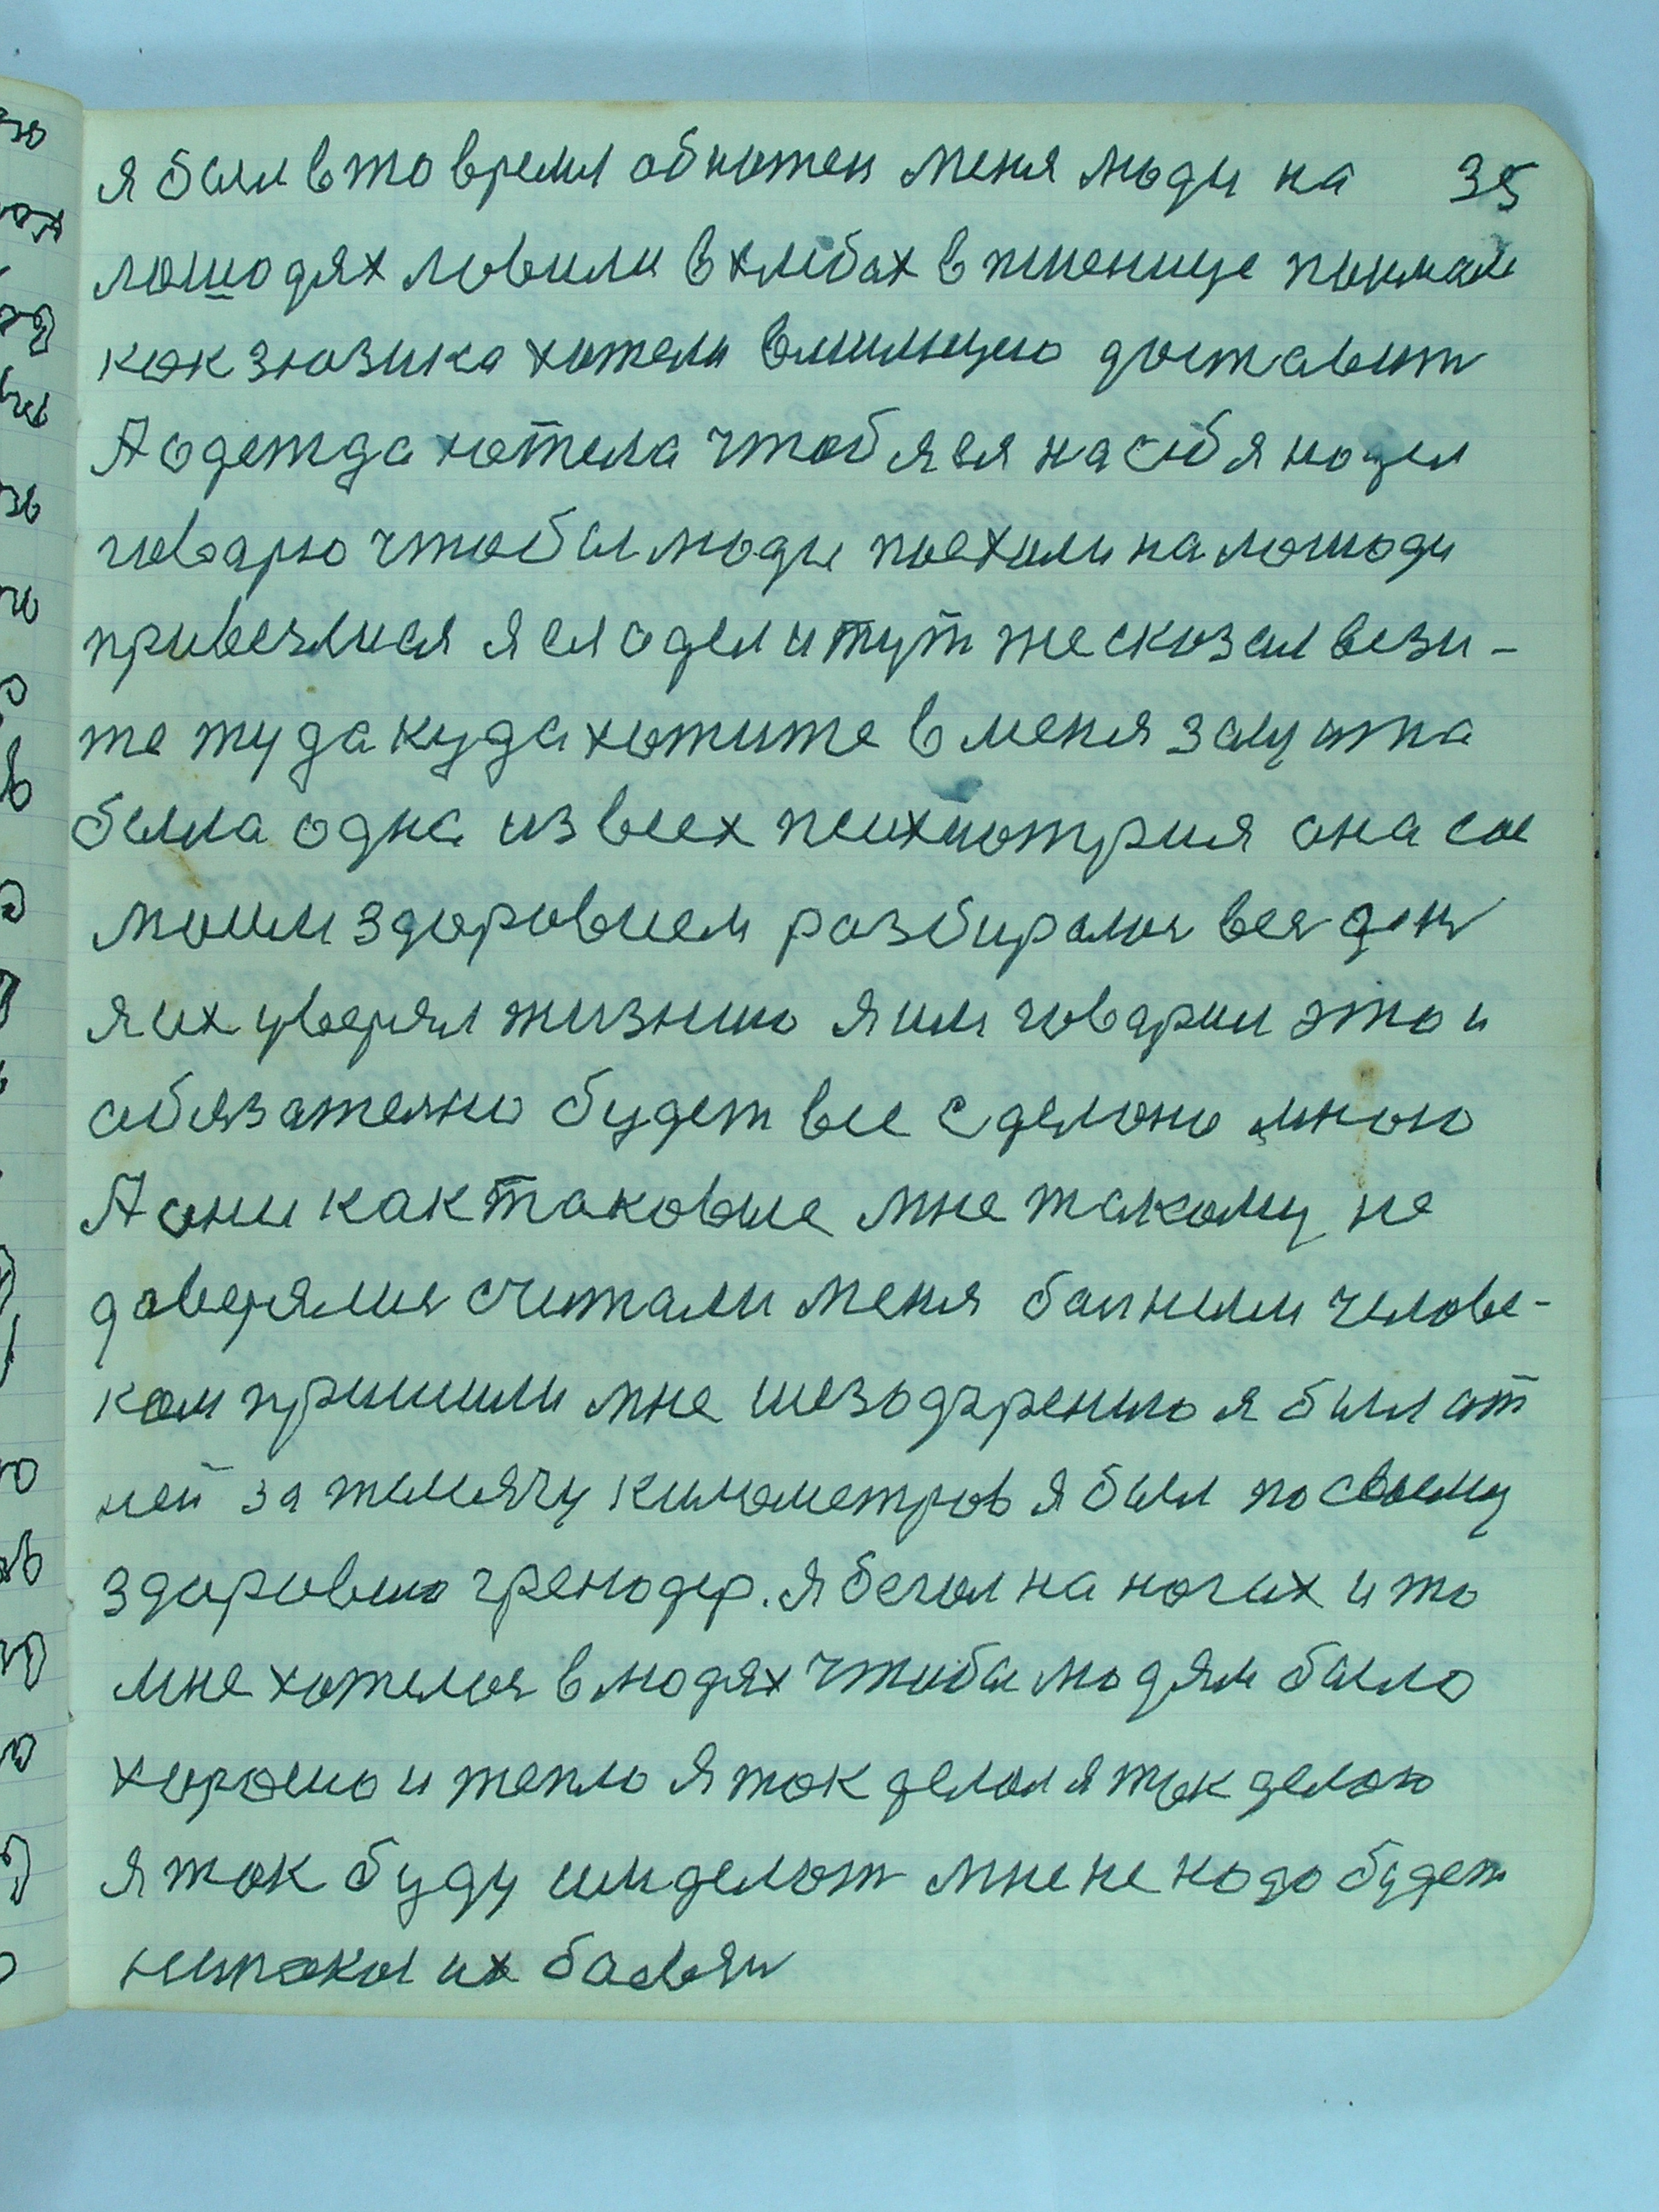 я был в то время обнотен меня люди на 35
лошодях ловили в хлебах в пшенице поймали
как зюзика хотели вмилицию доставит
А одежда хотела чтоб я ея на себя нодел
говарю чтобы люди поехали на лошоди
привезлися я ея одел и тут же сказал вези-
те туда куда хотите в меня защитна
была одна из всех психиотрия она сое
моим здоровием разбиралоя вея ден
я их уверял жизнию я им говарил это и
обязателно будет все сделоно мною
А они как таковые мне такому не
даверялия считали меня бапнеим челове-
ком пришили мне шезодрению я был от
ней за тысячу километров я был по своему
здоровию гренодер. я бегал на ногих и то
мне хотелоя в людях чтобы людям было
хорошо и тепло я ток делал я так делаю
я ток буду им делат мне не нодо будет
их